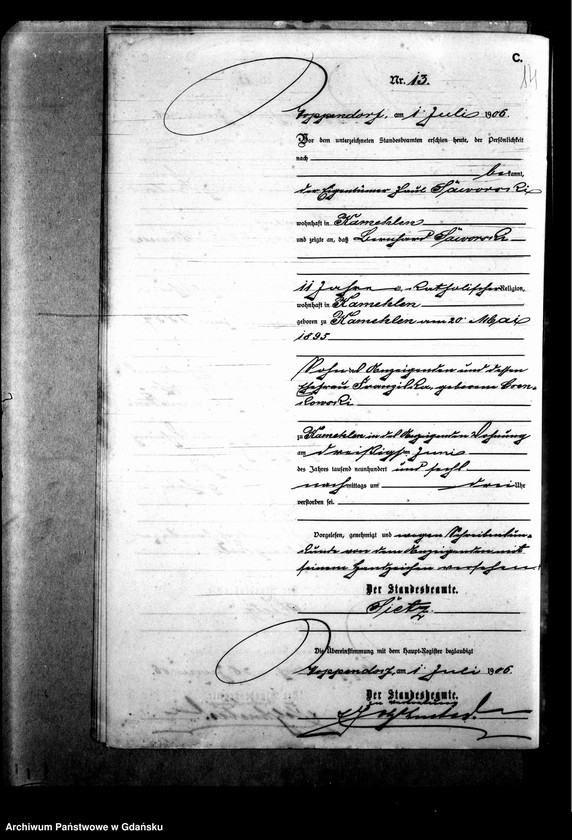 C.
14
Nr. 13.
Zoppendorf, am 1 Juli 1906.
Vor dem unterzeichneten Standesbeamten erschien heute, der Persönlichkeit
nach
bekannt,
der Eigentümer Paul
wohnhaft in Kamehlen
und zeigte an, daß Bernhard
11 Jahre katholischer Religion,
wohnhaft in Kamehlen
geboren zu Kamehlen am 20 Mai
1895
Sohn des Anzeigenden und dessen
Ehefrau Franziska, geborene
zu Kamehlen in des Anzeigenden Wohnung
am dreißigsten Juni
des Jahres tausend neunhundert und sechs
nachmittags um drei Uhr
verstorben sei.
Vorgelesen, genehmigt und wegen Schreibensun-
kunde von dem Anzeigenden mit
seinem Handzeichen versehen.
Der Standesbeamte.
Die Übereinstimmung mit dem Haupt-Register beglaubigt
Zoppendorf, am 1 Juli 1906.
Der Standesbeamte.
In Vertretung
Archiwum Państwowe w Gdańsku